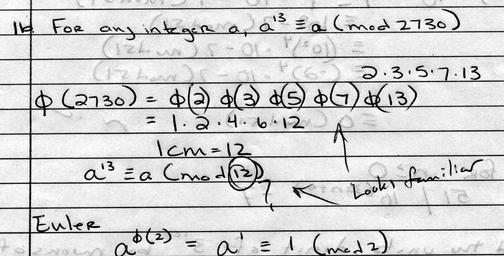 16 For any integer a, a¹³ ≡ a (mod 2730)
2·3·5·7·13
ϕ(2730) = ϕ(2) ϕ(3) ϕ(5) ϕ(7) ϕ(13)
= 1·2·4·6·12
lcm = 12
a¹³ ≡ a (mod 12)
? Looks familiar
Euler
a^ϕ(2) = a¹ ≡ 1 (mod 2)